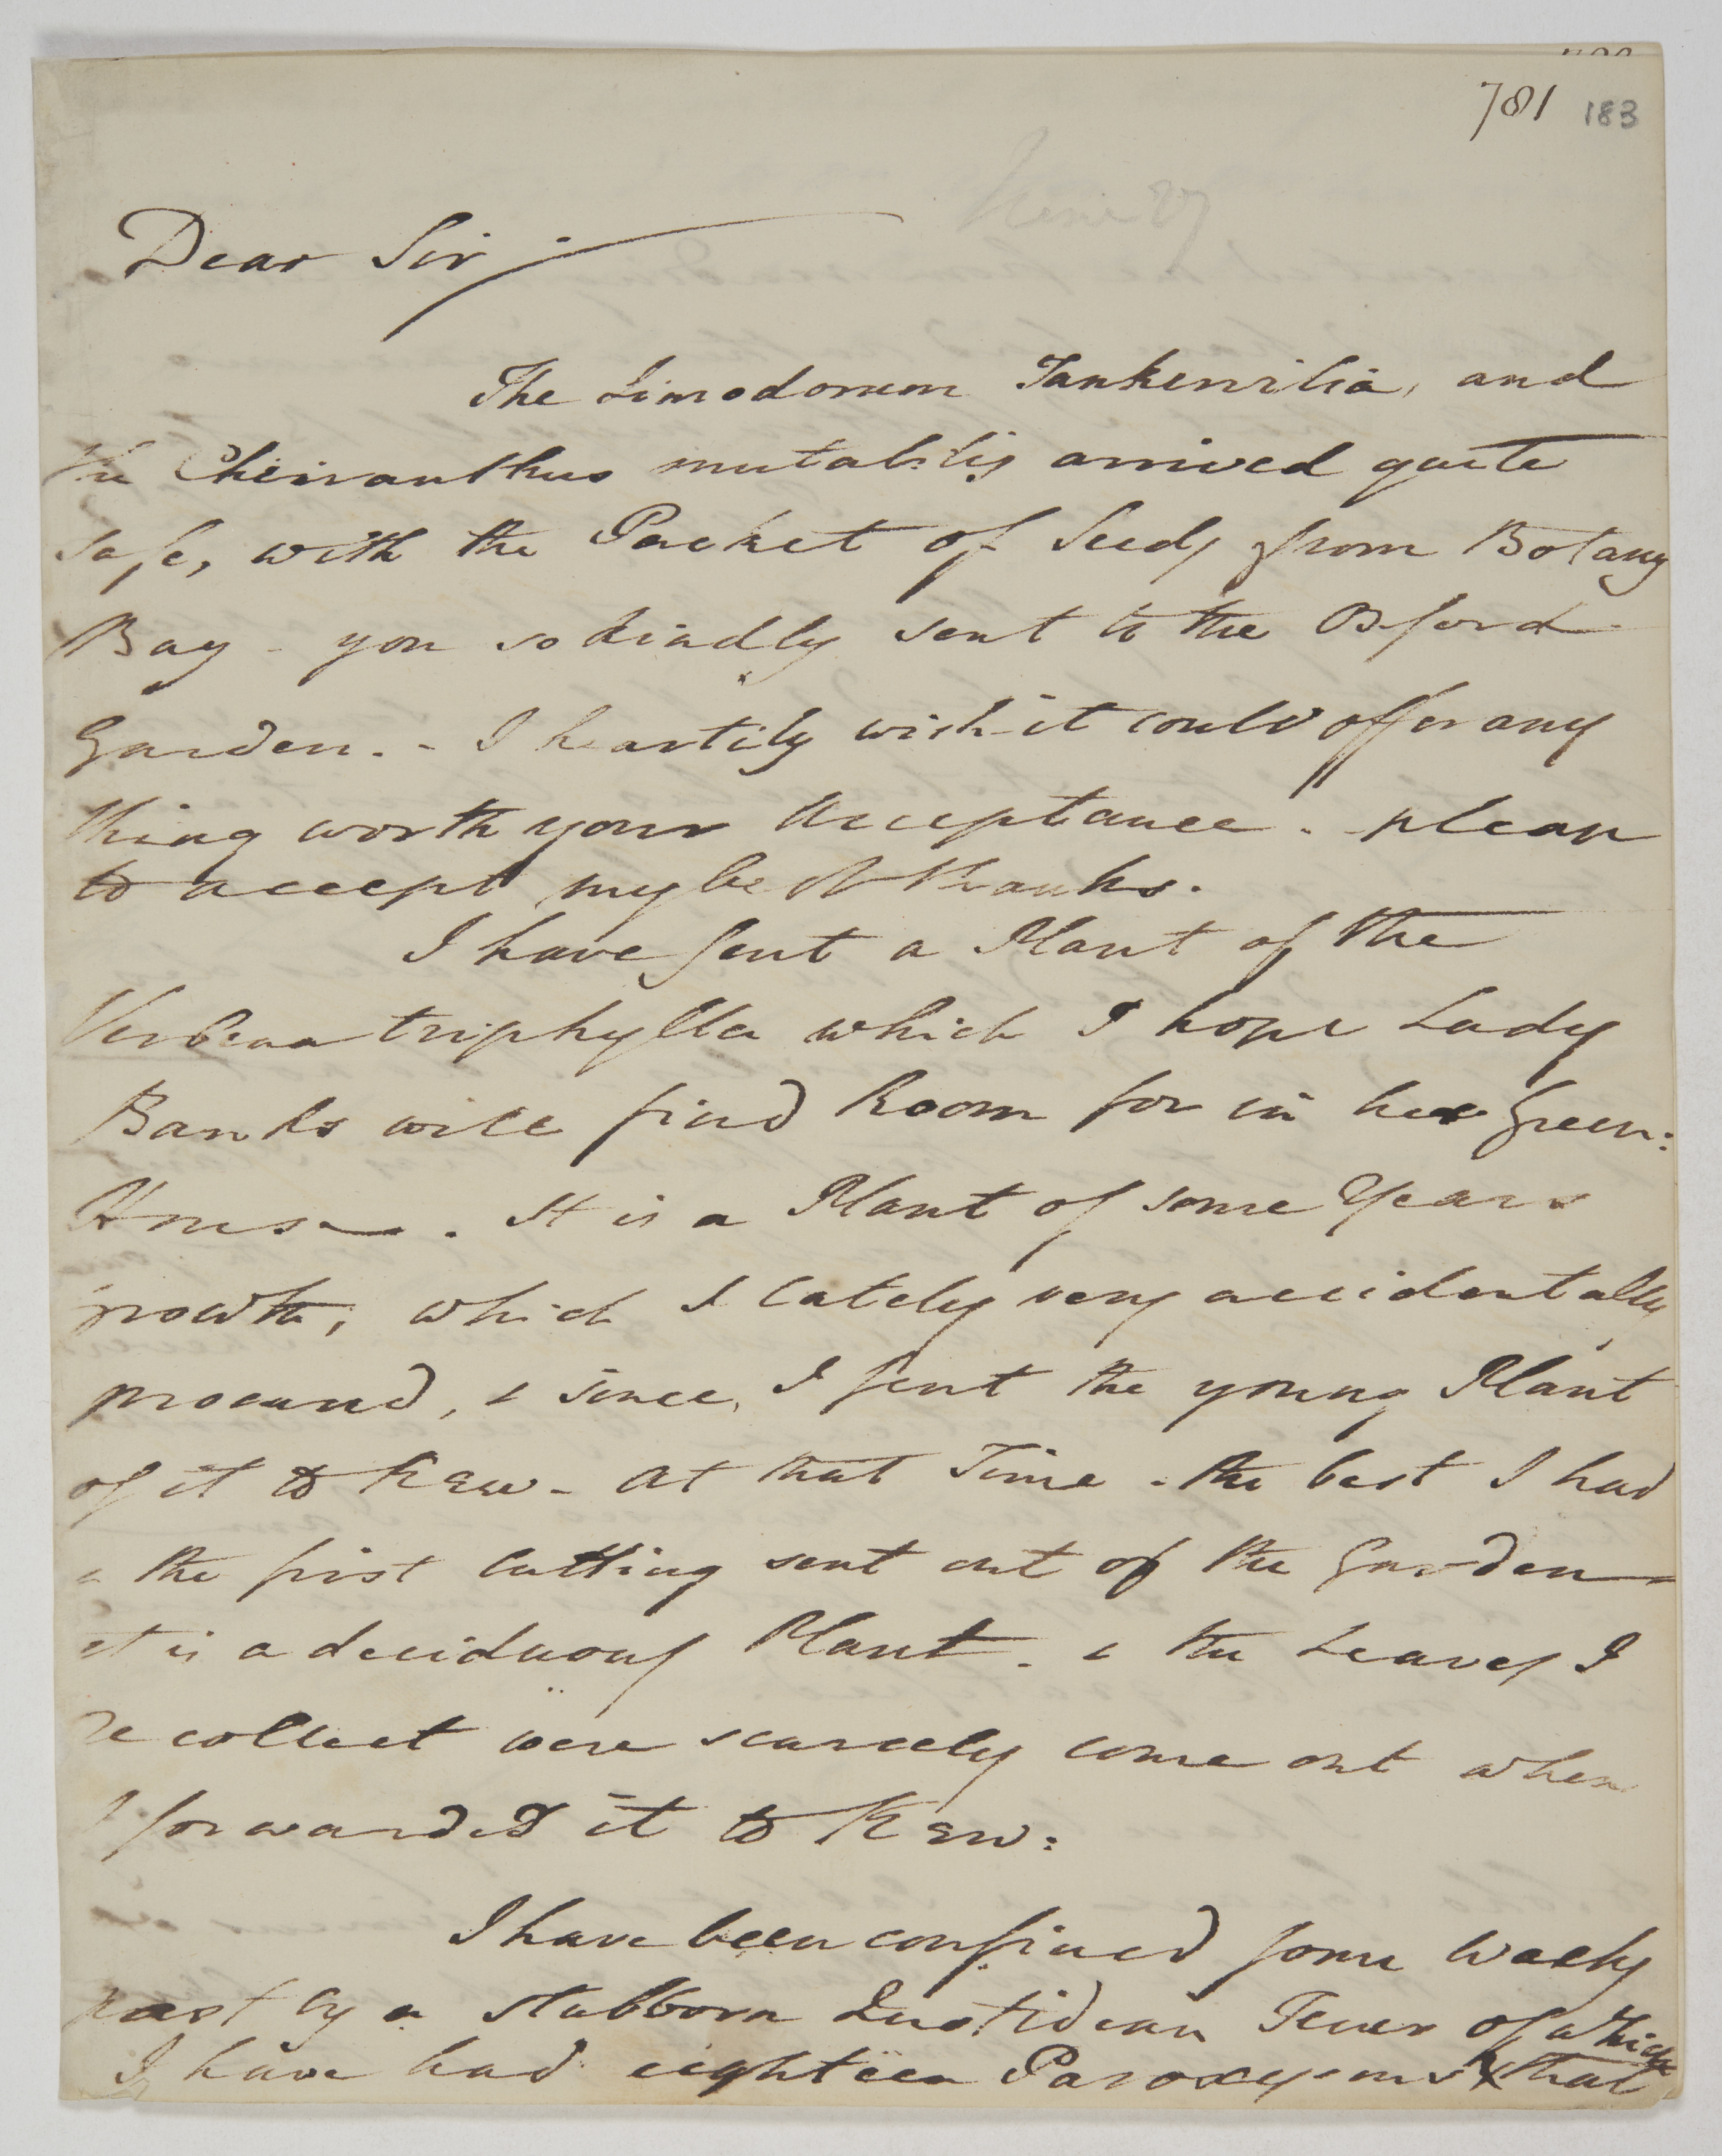 781 183
June 27
Dear Sir
The Limodorum Tankervilia, and
the Cheiranthus mutabilis arrived quite
safe, with the Packet of Seeds from Botany
Bay - you so kindly sent to the Oxford
Garden. - I heartily wish it could offer any
thing worth your Acceptance. - please
to accept my best thanks.
I have sent a Plant of the
Verbena triphylla which I hope Lady
Banks will find Room for in her Green:
House. It is a Plant of some Years
growth, which I lately very accidentally
procured, & since I sent the young Plant
of it to Kew - at that Time - the best I had
& the first Cutting sent out of the Garden
it is a deciduous Plant - & the Leaves I
recollect were scarcely come out when
I forwarded it to Kew:
I have been confined some Weeks
past by a stubborn Quotidian Fever of which
I have had eighteen Paroxysms & that